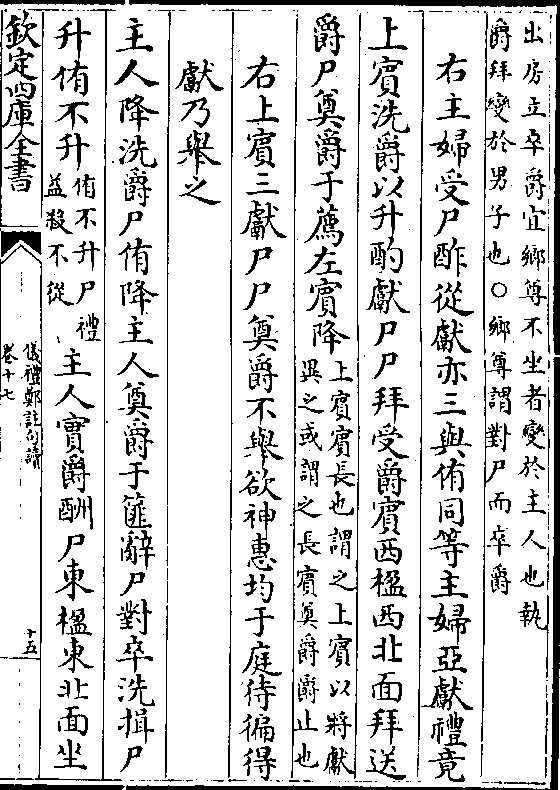 出房立卒爵宜鄉尊不坐者變於主人也執
爵拜變於男子也○鄉尊謂對尸而卒爵
右主婦受尸酢從獻亦三與侑同等主婦亞獻禮竟
上賓洗爵以升酌獻尸尸拜受爵賓西楹西北面拜送
爵尸奠爵于薦左賓降上賓賓長也謂之上賓以將獻
異之或謂之長賓奠爵爵止也
右上賓三獻尸尸奠爵不舉欲神惠均于庭待徧得
獻乃舉之
主人降洗爵尸侑降主人奠爵于篚辭尸對卒洗揖尸
升侑不升侑不升尸禮
益殺不從主人實爵酬尸東楹東北面坐
欽定四庫全書
儀禮鄭註句讀
卷十七
十五